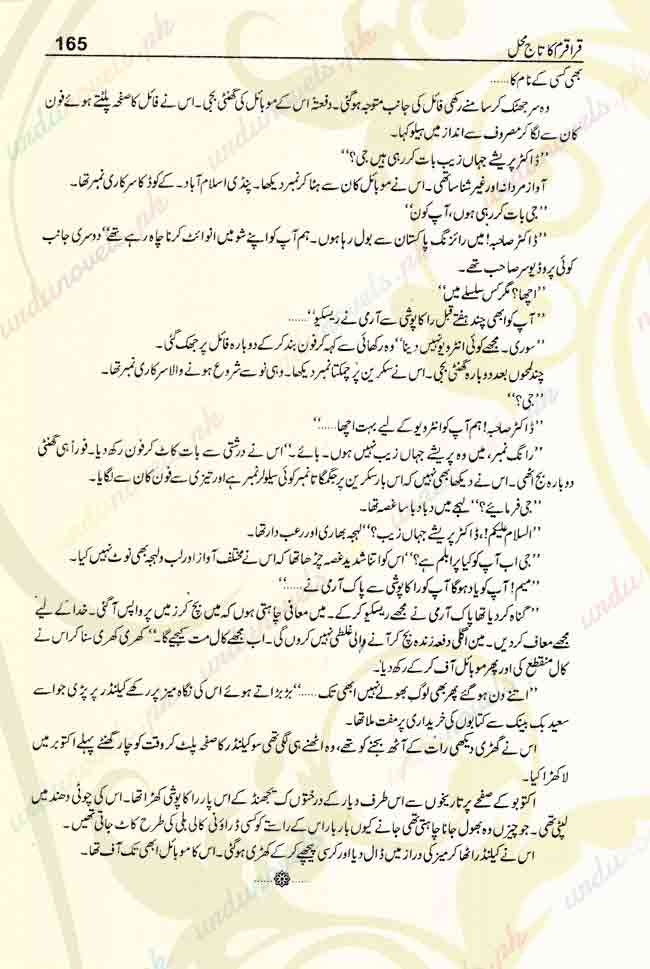 قراقرم کا تاج محل 165
بھی کسی کے نام کا......
وہ سر جھٹک کر سامنے رکھی فائل کی جانب متوجہ ہوگئی۔ دفعتہً اس کے موبائل کی گھنٹی بجی۔ اس نے فائل کا صفحہ پلٹتے ہوئے فون
کان سے لگا کر مصروف سے انداز میں ہیلو کہا۔
’’ڈاکٹر پریشے جہاں زیب بات کر رہی ہیں جی؟‘‘
آواز مردانہ اور غیر شناسا تھی۔ اس نے موبائل کان سے ہٹا کر نمبر دیکھا۔ پنڈی اسلام آباد۔ کے کوڈ کا سرکاری نمبر تھا۔
’’جی بات کر رہی ہوں، آپ کون‘‘
’’ڈاکٹر صاحبہ! میں رائزنگ پاکستان سے بول رہا ہوں۔ ہم آپ کو اپنے شو میں انوائٹ کرنا چاہ رہے تھے‘‘ دوسری جانب
کوئی پروڈیوسر صاحب تھے۔
’’اچھا؟ مگر کس سلسلے میں‘‘
’’آپ کو ابھی چند ہفتے قبل راکاپوشی سے آرمی نے ریسکیو‘‘......
’’سوری۔ مجھے کوئی انٹرویو نہیں دینا‘‘ وہ رکھائی سے کہہ کر فون بند کر کے دوبارہ فائل پر جھک گئی۔
چند لمحوں بعد دوبارہ گھنٹی بجی۔ اس نے سکرین پر چمکتا نمبر دیکھا۔ وہی نو سے شروع ہونے والا سرکاری نمبر تھا۔
’’جی؟‘‘
’’ڈاکٹر صاحبہ! ہم آپ کو انٹرویو کے لیے بہت اچھا......‘‘
’’رانگ نمبر، میں وہ پریشے جہاں زیب نہیں ہوں۔ بائے۔‘‘ اس نے درشتی سے بات کاٹ کر فون رکھ دیا۔ فوراً ہی گھنٹی
دوبارہ بج اٹھی۔ اس نے دیکھا بھی نہیں کہ اس بار سکرین پر جگمگاتا نمبر کوئی سیلولر نمبر ہے اور تیزی سے فون کان سے لگایا۔
’’جی فرمائیے؟‘‘ لہجے میں دبا دبا سا غصہ تھا۔
’’السلام علیکم!، ڈاکٹر پریشے جہاں زیب؟‘‘ لہجہ بھاری اور رعب دار تھا۔
’’جی اب آپ کو کیا پرابلم ہے؟‘‘ اس کو اتنا شدید غصہ چڑھا تھا کہ اس نے مختلف آواز اور لب و لہجہ بھی نوٹ نہیں کیا۔
’’میم! آپ کو یاد ہوگا آپ کو راکاپوشی سے پاک آرمی نے......‘‘
’’گناہ کر دیا تھا پاک آرمی نے مجھے ریسکیو کر کے۔ میں معافی چاہتی ہوں کہ میں بچ کر زمیں پر واپس آ گئی۔ خدا کے لیے
مجھے معاف کر دیں۔ مین اگلی دفعہ زندہ بچ کر آنے والی غلطی نہیں کروں گی۔ اب مجھے کال مت کیجیے گا۔‘‘ کھری کھری سنا کر اس نے
کال منقطع کی اور پھر موبائل آف کر کے رکھ دیا۔
’’اتنے دن ہو گئے پھر بھی لوگ بھولے نہیں ابھی تک......‘‘ بڑبڑاتے ہوئے اس کی نگاہ میز پر رکھے کیلنڈر پر پڑی جو اسے
سعید بک بینک سے کتابوں کی خریداری پر مفت ملا تھا۔
اس نے گھڑی دیکھی رات کے آٹھ بجنے کو تھے، وہ اٹھنے ہی لگی تھی سو کیلنڈر کا صفحہ پلٹ کر وقت کو چار گھنٹے پہلے اکتوبر میں
لا کھڑا کیا۔
اکتوبو کے صفحے پر تاریخوں سے اس طرف دیار کے درختوں ک یجھنڈ کے اس پار راکاپوشی کھڑا تھا۔ اس کی چوٹی دھند میں
لپٹی تھی۔ جو چیزں وہ بھول جانا چاہتی تھی جانے کیوں بار بار اس کے راستے کو کسی ڈراؤنی کالی بلی کی طرح کاٹ جاتی تھیں۔
اس نے کیلنڈر اٹھا کر میز کی دراز میں ڈال دیا اور کرسی پیچھے کر کے کھڑی ہوگئی۔ اس کا موبائل ابھی تک آف تھا۔
urdunovels.pk